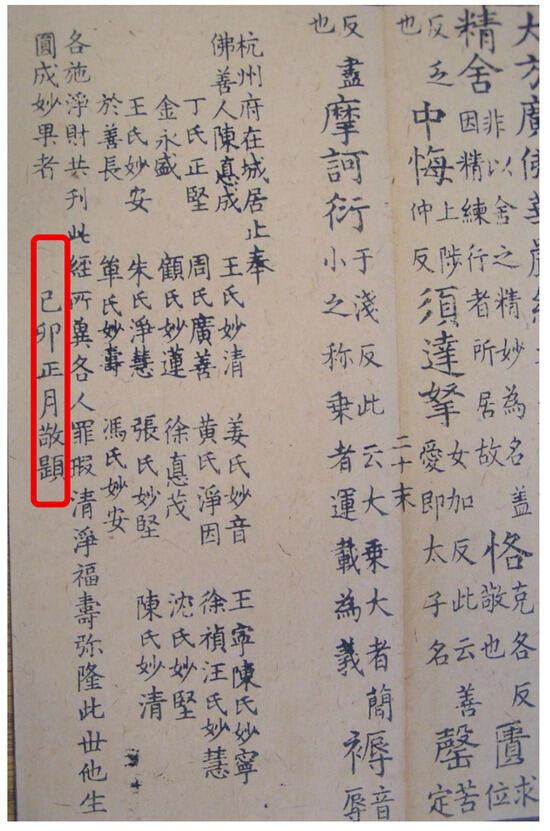 大方廣佛華嚴經
精舍 非以舍之精妙為名蓋因精練行者所居故 恪 克各反敬也 匱 求位
反乏也 中悔 上陟仲反 須達拏 女加反此云善愛即太子名 罄 苦定
二十末
反盡也 摩訶衍 于淺反此云大乘大者簡小之称乘者運載為義 褥 音辱
杭州府在城居止奉
佛善人陳悳成 王氏妙清 姜氏妙音 王寧陳氏妙寧
丁氏正堅 周氏廣善 黄氏淨因 徐禎汪氏妙慧
金永盛 顧氏妙蓮 徐悳茂 沈氏妙堅
王氏妙安 朱氏淨慧 張氏妙堅 陳氏妙清
於善長 箪氏妙壽 馮氏妙安
各施淨財共刋此經所兾各人罪瑕清淨福壽弥隆此世他生
圓成妙果者 己卯正月敬題